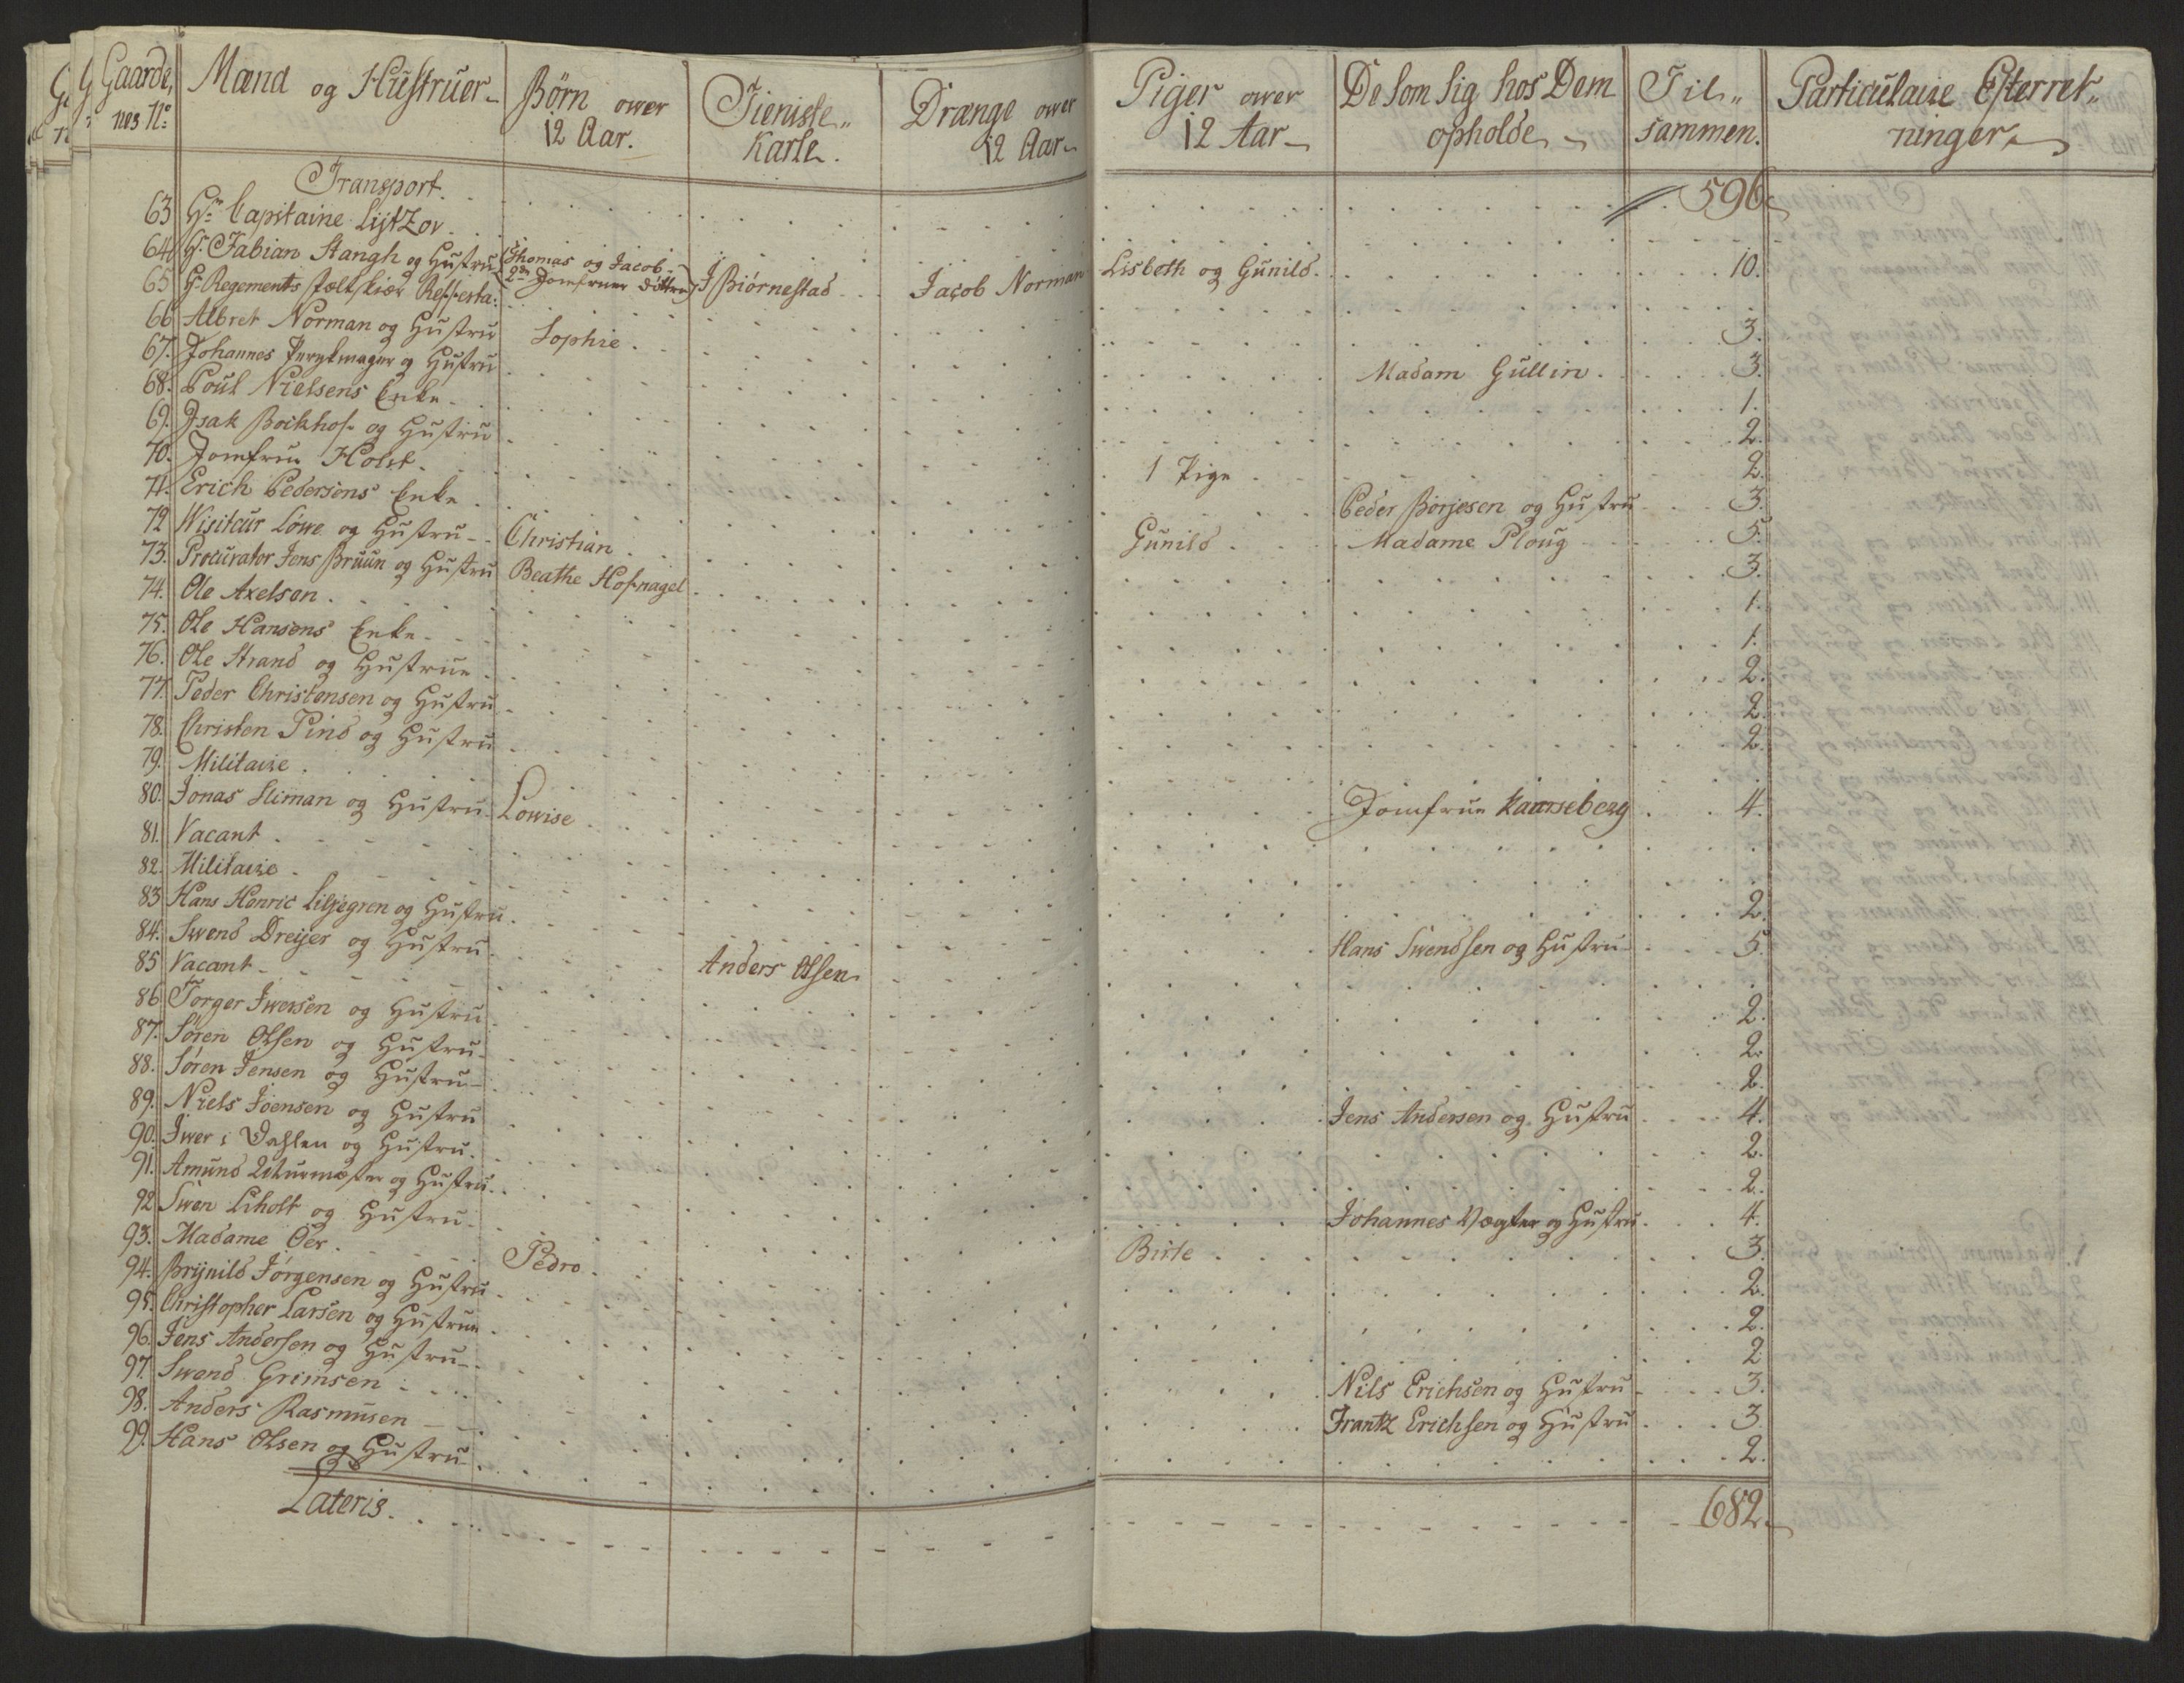 Gaarde, nes No. | Mænd og Hustruer | Børn over 12 Aar. | Tieniste Karle. | Drænge over 12 Aar | Piger over 12 Aar | De som sig hos Dem opholde | Til sammen. | Particulaire Efterretninger
Transport. | 596
63 Hr. Capitaine Lÿtzov
64 Hr. Fabian Stangh og Hustru | Thomas og Jacob 2de Jomfruer dittoes | J Biørnestad | Jacob Norman | Lisbeth og Gunild | 10.
65 Hr. Regements fælt skiær
66 Albret Norman og Hustru | Sophie | 3.
67. Johannes og Hustru | Madam Gullin | 3.
68. Poul Nielsens Enke | 1.
69. Isak Bockhof og Hustru | 2.
70. Jomfru Holst | 1 Pige | 2.
71. Erich Pedersens Enke | Peder Børjesen og Hustru | 3.
72 Wisiteur Løwe og Hustru | Christian | Gunild | Madame Ploug | 5.
73. Procurator Jens Bruun og Hustru | Beathe Hofnagel | 3.
74. Ole Axelsen | 1.
75. Ole Hansens Enke | 1.
76. Ole Strand og Hustrue | 2.
77. Peder Christensen og Hustru | 2.
78. Christen Pind og Hustru | 2.
79. Militaire
80. Jonas Sliman og Hustru | Lowise | Jomfrue Kaarseberg | 4.
81. Vacant
82. Militaire
83 Hans Henric Liljegren og Hustru | 2.
84. Swend Dreijer og Hustru | Anders Olsen | Hans Swendsen og Hustru | 5.
85 Vacant
86 Torger Iwersen og Hustru | 2.
87. Søren Olsen og Hustru | 2.
88. Søren Jensen og Hustru | 2.
89. Niels Joensen og Hustru | Jens Andersen og Hustru | 4.
90. Iwer i Dahlen og Hustru | 2.
91. Amund og Hustru | 2.
92 Swen Liholt og Hustru | Johannes Vægter og Hustru | 4.
93. Madame Oer | Pedro | Birte | 3.
94. Brijnild Jørgensen og Hustru | 2.
95. Christopher Larsen og Hustrue | 2.
96. Jens Andersen og Hustru | 2
97. Swend Grimsen | Nils Erichsen og Hustru | 3.
98. Anders Rasmusen | Frantz Erichsen og Hustru | 3.
99. Hans Olsen og Hustru | 2.
Lateris | 682.